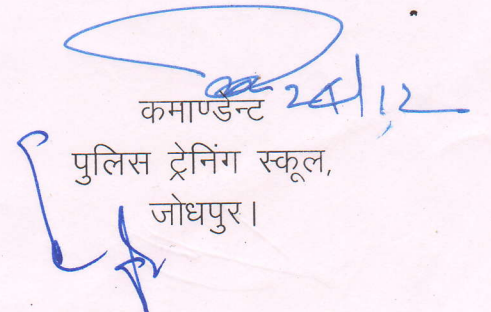 24/12
कमाण्डेन्ट
पुलिस ट्रेनिंग स्कूल,
जोधपुर।